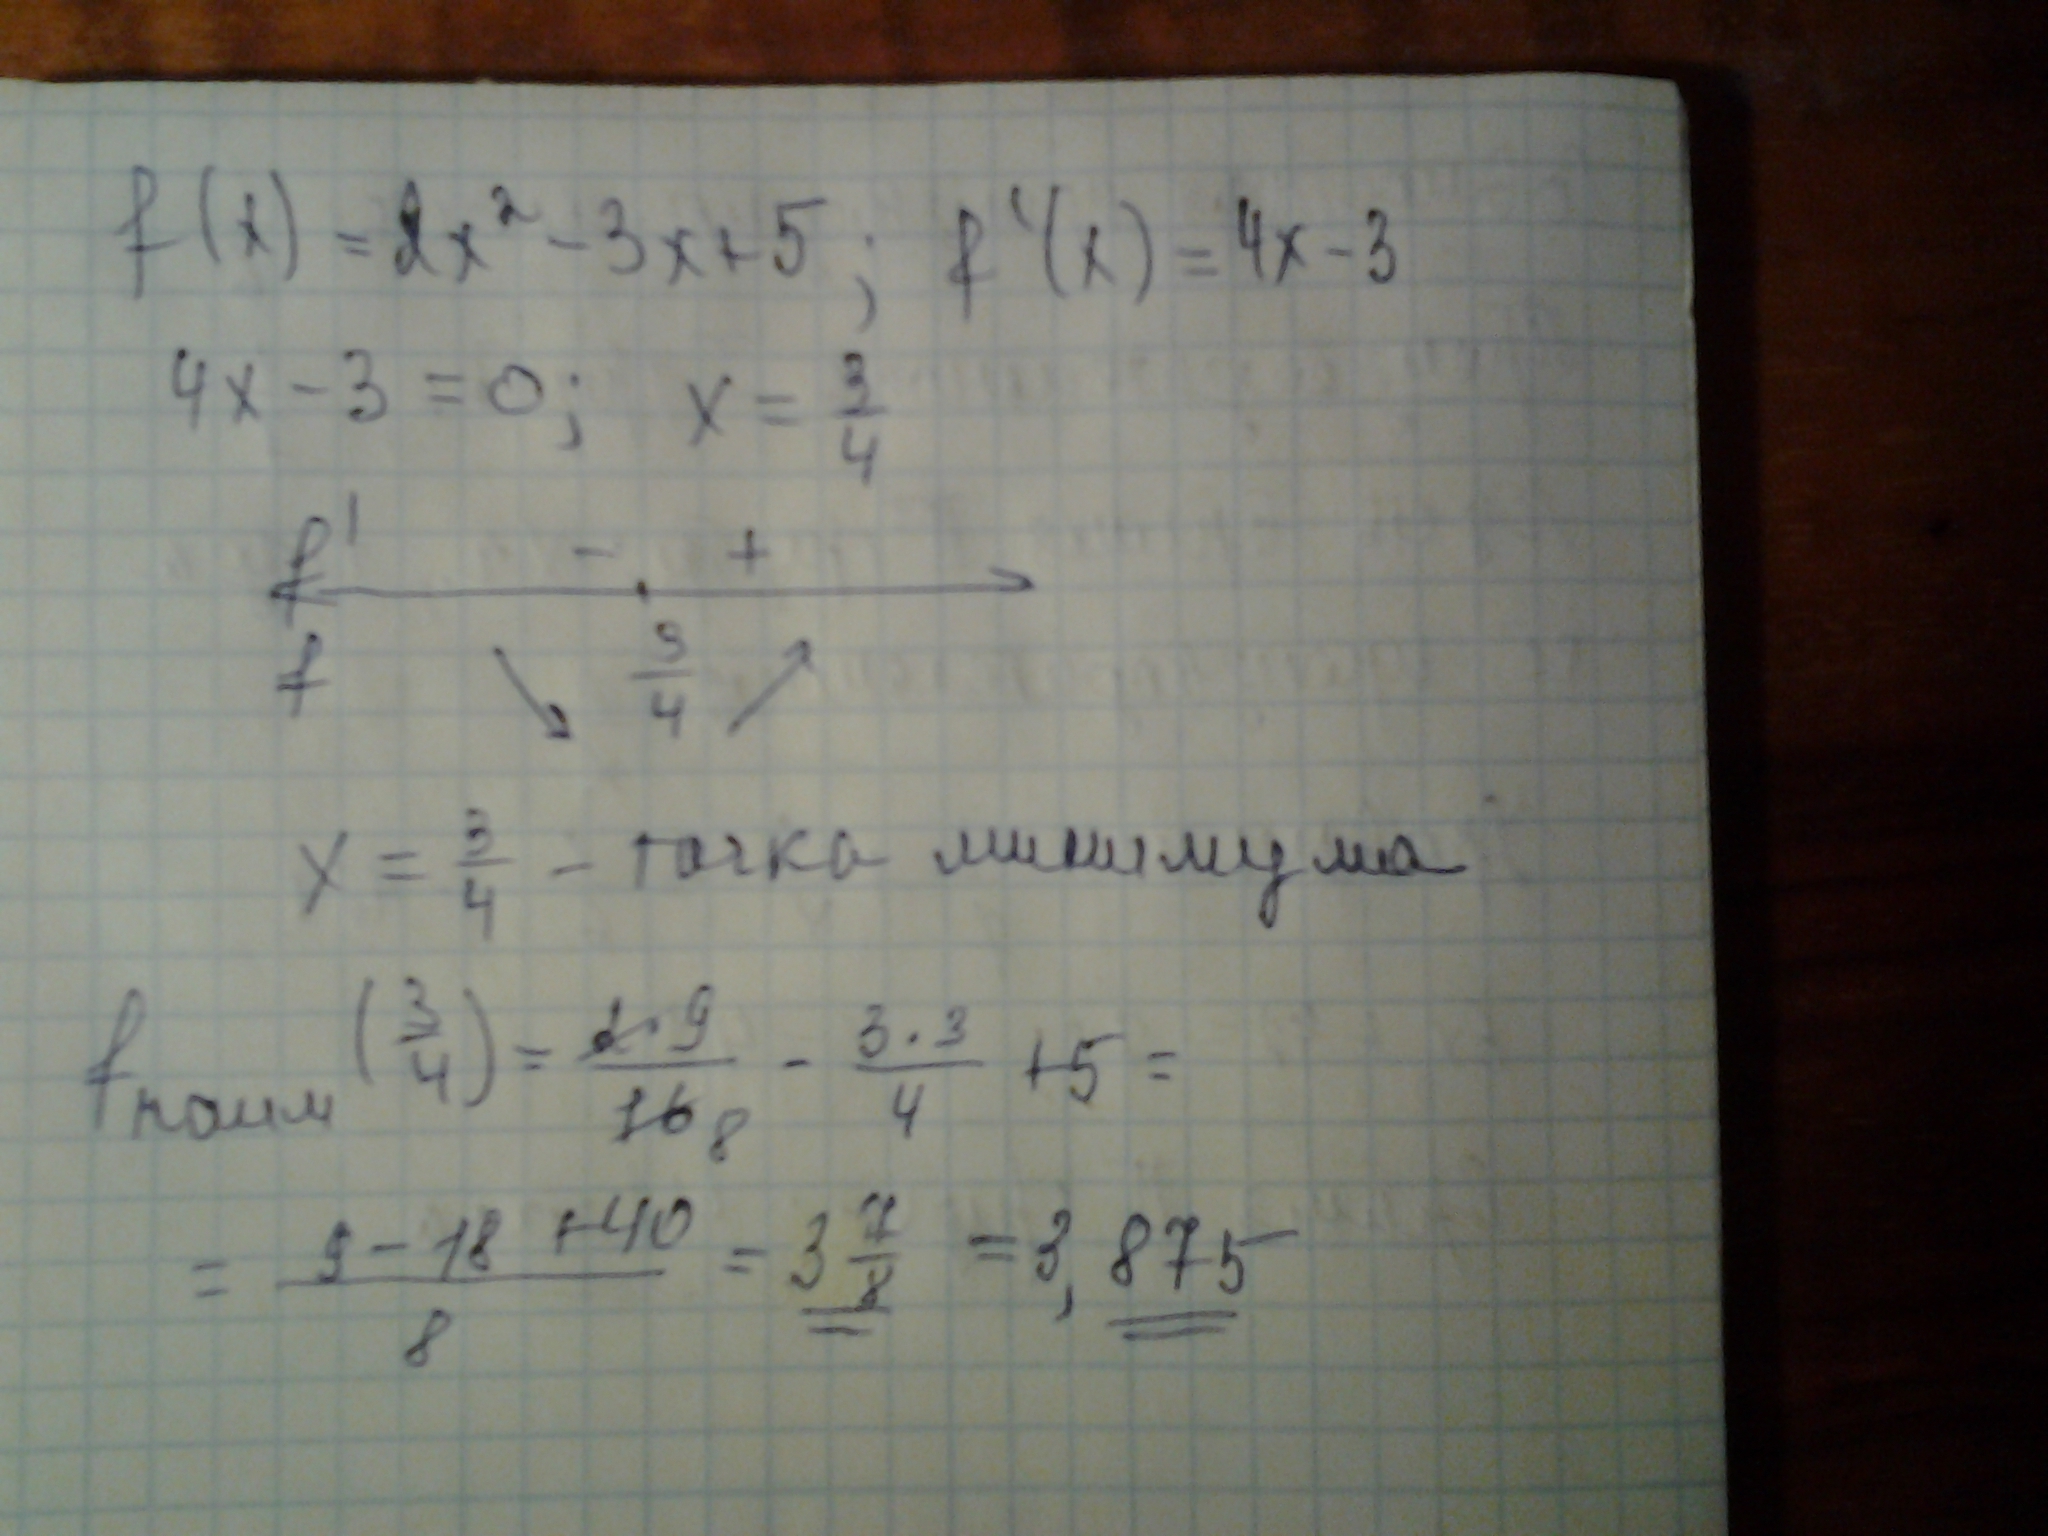 f(x) = 2x² - 3x + 5 ; f'(x) = 4x - 3
4x - 3 = 0 ; x = 3/4
f' - +
f 3/4
x = 3/4 - точка минимума
fнаим (3/4) = 2·9/16 8 - 3·3/4 + 5 =
= 9 - 18 + 40/8 = 3 7/8 = 3,875